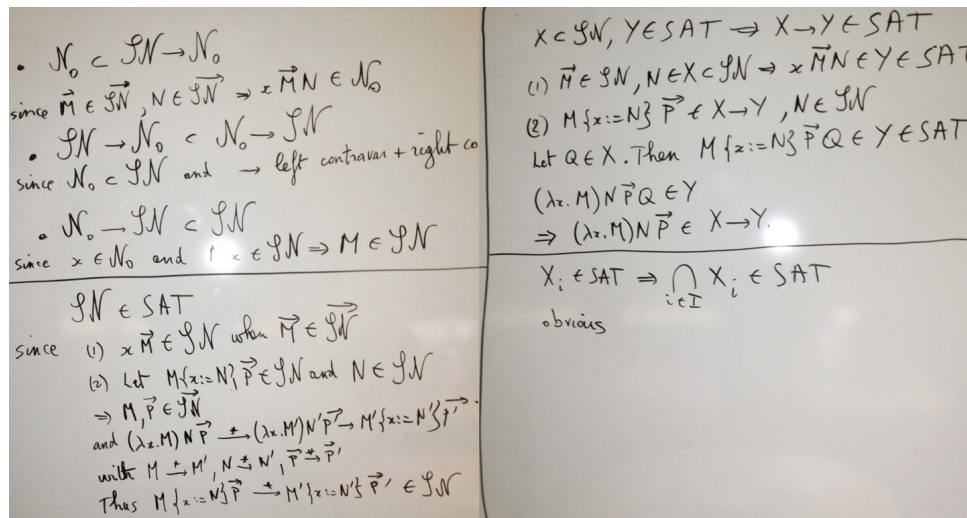 • 𝒩₀ ⊂ 𝒮𝒩 → 𝒩₀
since M⃗ ∈ 𝒮𝒩⃗, N ∈ 𝒮𝒩⃗ ⇒ x M⃗ N ∈ 𝒩₀
• 𝒮𝒩 → 𝒩₀ ⊂ 𝒩₀ → 𝒮𝒩
since 𝒩₀ ⊂ 𝒮𝒩 and → left contravar + right co
• 𝒩₀ → 𝒮𝒩 ⊂ 𝒮𝒩
since x ∈ 𝒩₀ and x ∈ 𝒮𝒩 ⇒ M ∈ 𝒮𝒩
𝒮𝒩 ∈ SAT
since (1) x M⃗ ∈ 𝒮𝒩 when M⃗ ∈ 𝒮𝒩⃗
(2) Let M{x:=N} P⃗ ∈ 𝒮𝒩 and N ∈ 𝒮𝒩
⇒ M, P⃗ ∈ 𝒮𝒩⃗
and (λx.M) N P⃗ →* (λx.M') N' P⃗' → M'{x:=N'} P⃗'
with M →* M', N →* N', P⃗ →* P⃗'
Thus M{x:=N} P⃗ →* M'{x:=N'} P⃗' ∈ 𝒮𝒩
X ⊂ 𝒮𝒩, Y ∈ SAT ⇒ X → Y ∈ SAT
(1) M⃗ ∈ 𝒮𝒩, N ∈ X ⊂ 𝒮𝒩 ⇒ x M⃗ N ∈ Y ∈ SAT
(2) M{x:=N} P⃗ ∈ X → Y, N ∈ 𝒮𝒩
Let Q ∈ X. Then M{x:=N} P⃗ Q ∈ Y ∈ SAT
(λx.M) N P⃗ Q ∈ Y
⇒ (λx.M) N P⃗ ∈ X → Y.
X_i ∈ SAT ⇒ ⋂_{i∈I} X_i ∈ SAT
obvious